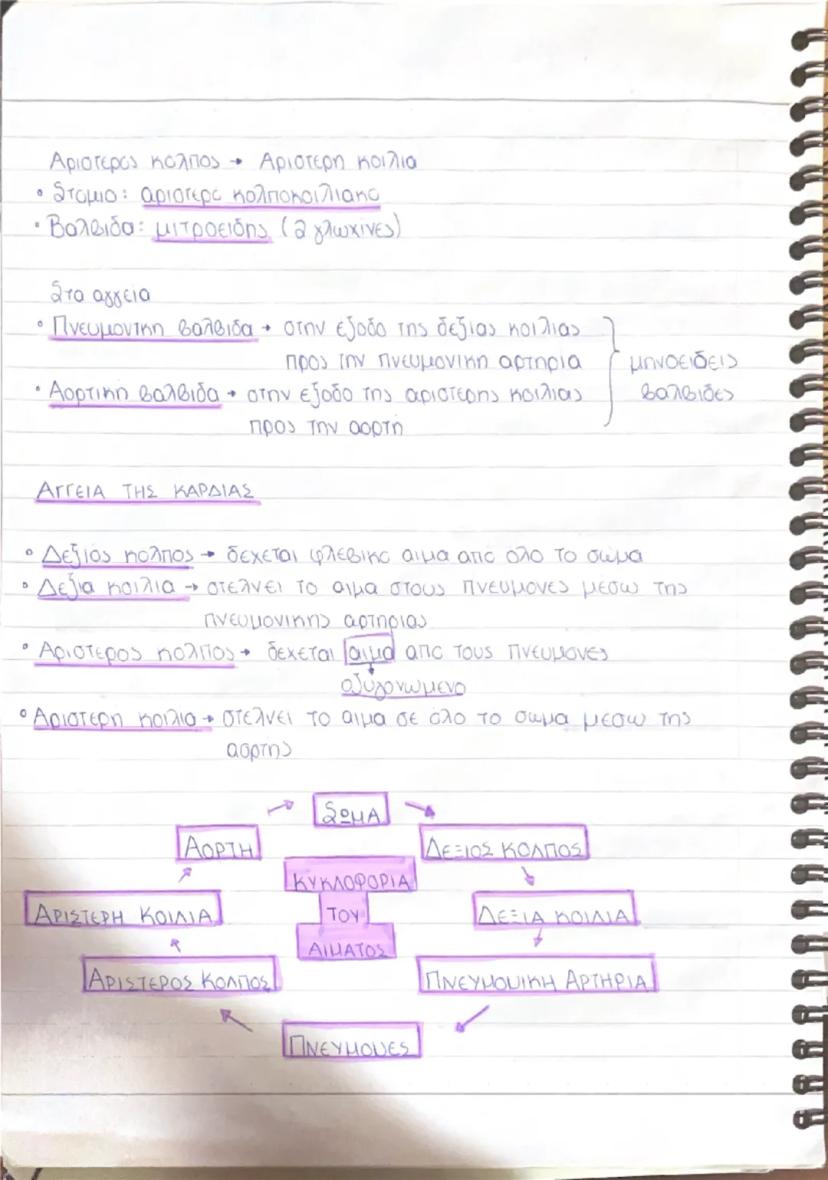 Αριστερος κολπος → Αριστερη κοιλια
• Στομιο: αριστερο κολποκοιλιακο
• Βαλβιδα: μιτροειδης (2 γλωχινες)
Στα αγγεια
• Πνευμονικη βαλβιδα → στην εξοδο της δεξιας κοιλιας
προς την πνευμονικη αρτηρια
• Αορτικη βαλβιδα → στην εξοδο της αριστερης κοιλιας
προς την αορτη
μηνοειδεις
βαλβιδες
ΑΓΓΕΙΑ ΤΗΣ ΚΑΡΔΙΑΣ
• Δεξιος κολπος → δεχεται φλεβικο αιμα απο ολο το σωμα
• Δεξια κοιλια → στελνει το αιμα στους πνευμονες μεσω της
πνευμονικης αρτηριας
• Αριστερος κολπος → δεχεται αιμα απο τους πνευμονες
οξυγονωμενο
• Αριστερη κοιλια → στελνει το αιμα σε ολο το σωμα μεσω της
αορτης
ΣΩΜΑ
ΑΟΡΤΗ
ΔΕΞΙΟΣ ΚΟΛΠΟΣ
ΚΥΚΛΟΦΟΡΙΑ
ΑΡΙΣΤΕΡΗ ΚΟΙΛΙΑ
ΤΟΥ
ΔΕΞΙΑ ΚΟΙΛΙΑ
ΑΙΜΑΤΟΣ
ΑΡΙΣΤΕΡΟΣ ΚΟΛΠΟΣ
ΠΝΕΥΜΟΝΙΚΗ ΑΡΤΗΡΙΑ
ΠΝΕΥΜΟΝΕΣ